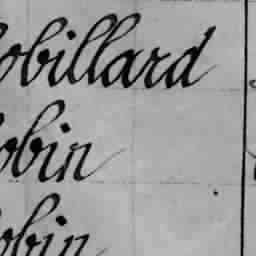 obillard
obin
obin